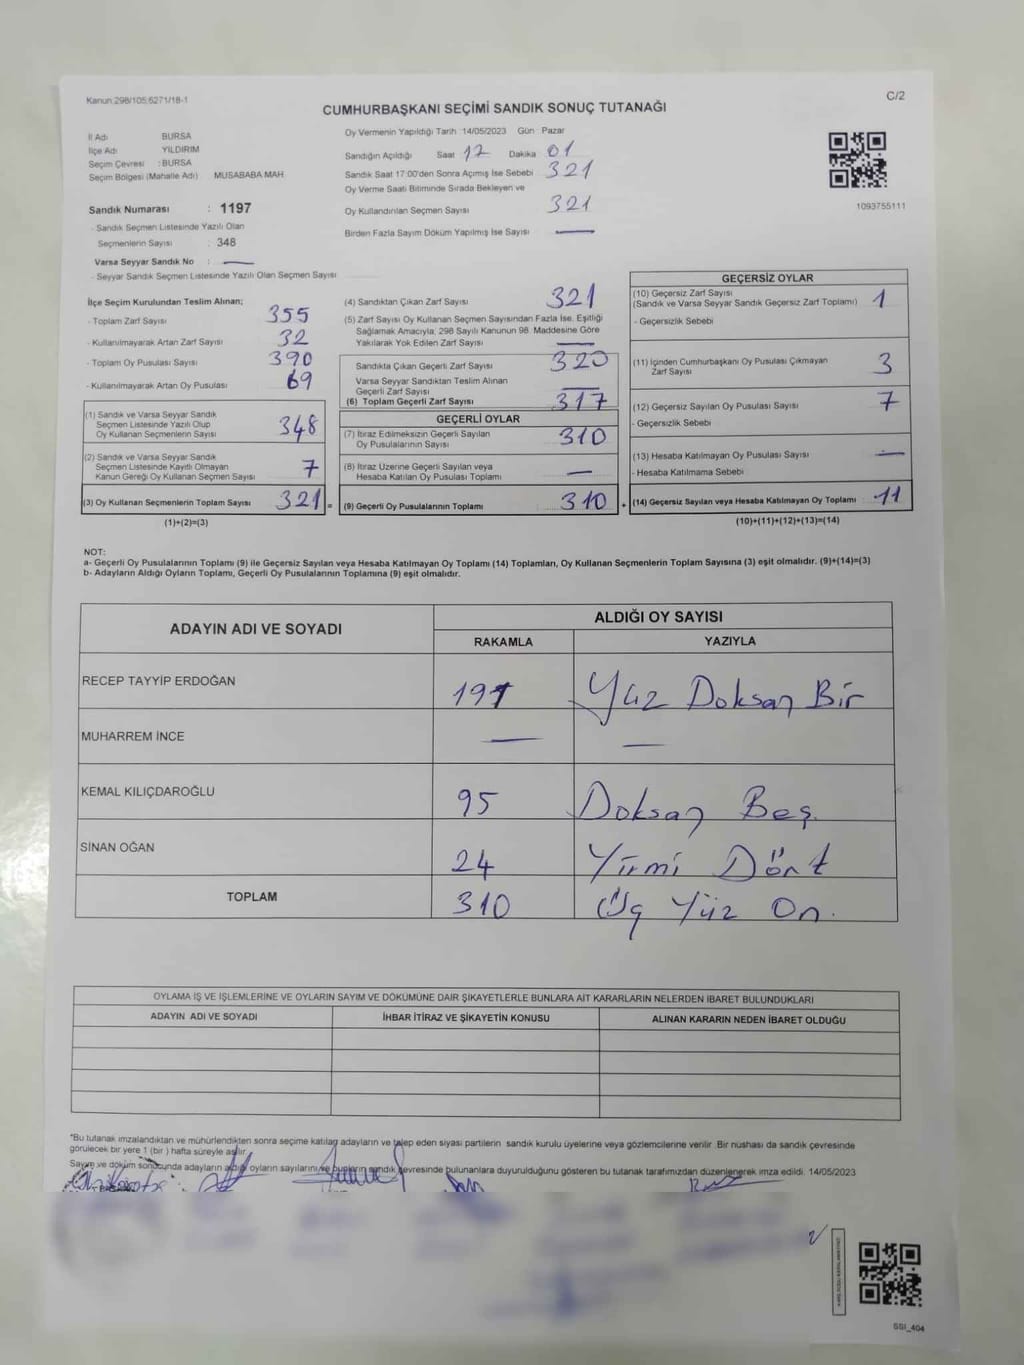 Kanun:298/105;6271/18-1
C/2
CUMHURBAŞKANI SEÇİMİ SANDIK SONUÇ TUTANAĞI
İl Adı BURSA
İlçe Adı YILDIRIM
Seçim Çevresi : BURSA
Seçim Bölgesi (Mahalle Adı) MUSABABA MAH
Sandık Numarası : 1197
- Sandık Seçmen Listesinde Yazılı Olan
Seçmenlerin Sayısı : 348
Varsa Seyyar Sandık No : —
- Seyyar Sandık Seçmen Listesinde Yazılı Olan Seçmen Sayısı
Oy Vermenin Yapıldığı Tarih :14/05/2023 Gün Pazar
Sandığın Açıldığı Saat 17 Dakika 01
Sandık Saat 17:00'den Sonra Açımış İse Sebebi 321
Oy Verme Saati Bitiminde Sırada Bekleyen ve
Oy Kullandırılan Seçmen Sayısı 321
Birden Fazla Sayım Döküm Yapılmış İse Sayısı —
1093755111
İlçe Seçim Kurulundan Teslim Alınan;
- Toplam Zarf Sayısı 355
- Kullanılmayarak Artan Zarf Sayısı 32
- Toplam Oy Pusulası Sayısı 390
- Kullanılmayarak Artan Oy Pusulası 69
(1) Sandık ve Varsa Seyyar Sandık
Seçmen Listesinde Yazılı Olup
Oy Kullanan Seçmenlerin Sayısı 348
(2) Sandık ve Varsa Seyyar Sandık
Seçmen Listesinde Kayıtlı Olmayan
Kanun Gereği Oy Kullanan Seçmen Sayısı 7
(3) Oy Kullanan Seçmenlerin Toplam Sayısı 321 =
(1)+(2)=(3)
(4) Sandıktan Çıkan Zarf Sayısı 321
(5) Zarf Sayısı Oy Kullanan Seçmen Sayısından Fazla İse, Eşitliği
Sağlamak Amacıyla, 298 Sayılı Kanunun 98. Maddesine Göre
Yakılarak Yok Edilen Zarf Sayısı —
Sandıkta Çıkan Geçerli Zarf Sayısı 320
Varsa Seyyar Sandıktan Teslim Alınan
Geçerli Zarf Sayısı —
(6) Toplam Geçerli Zarf Sayısı 317
GEÇERLİ OYLAR
(7) İtiraz Edilmeksizin Geçerli Sayılan
Oy Pusulalarının Sayısı 310
(8) İtiraz Üzerine Geçerli Sayılan veya
Hesaba Katılan Oy Pusulası Toplamı —
(9) Geçerli Oy Pusulalarının Toplamı 310 +
GEÇERSİZ OYLAR
(10) Geçersiz Zarf Sayısı
(Sandık ve Varsa Seyyar Sandık Geçersiz Zarf Toplamı) 1
- Geçersizlik Sebebi
(11) İçinden Cumhurbaşkanı Oy Pusulası Çıkmayan
Zarf Sayısı 3
(12) Geçersiz Sayılan Oy Pusulası Sayısı 7
- Geçersizlik Sebebi
(13) Hesaba Katılmayan Oy Pusulası Sayısı —
- Hesaba Katılmama Sebebi
(14) Geçersiz Sayılan veya Hesaba Katılmayan Oy Toplamı 11
(10)+(11)+(12)+(13)=(14)
NOT:
a- Geçerli Oy Pusulalarının Toplamı (9) ile Geçersiz Sayılan veya Hesaba Katılmayan Oy Toplamı (14) Toplamları, Oy Kullanan Seçmenlerin Toplam Sayısına (3) eşit olmalıdır. (9)+(14)=(3)
b- Adayların Aldığı Oyların Toplamı, Geçerli Oy Pusulalarının Toplamına (9) eşit olmalıdır.
ADAYIN ADI VE SOYADI ALDIĞI OY SAYISI
RAKAMLA YAZIYLA
RECEP TAYYİP ERDOĞAN 191 Yüz Doksan Bir
MUHARREM İNCE — —
KEMAL KILIÇDAROĞLU 95 Doksan Beş
SİNAN OĞAN 24 Yirmi Dört
TOPLAM 310 Üç Yüz On.
OYLAMA İŞ VE İŞLEMLERİNE VE OYLARIN SAYIM VE DÖKÜMÜNE DAİR ŞİKAYETLERLE BUNLARA AİT KARARLARIN NELERDEN İBARET BULUNDUKLARI
ADAYIN ADI VE SOYADI İHBAR İTİRAZ VE ŞİKAYETİN KONUSU ALINAN KARARIN NEDEN İBARET OLDUĞU
*Bu tutanak imzalandıktan ve mühürlendikten sonra seçime katılan adayların ve talep eden siyasi partilerin sandık kurulu üyelerine veya gözlemcilerine verilir. Bir nüshası da sandık çevresinde
görülecek bir yere 1 (bir ) hafta süreyle asılır.
Sayım ve döküm sonucunda adayların aldığı oyların sayılarını ve bunların sandık çevresinde bulunanlara duyurulduğunu gösteren bu tutanak tarafımızdan düzenlenerek imza edildi. 14/05/2023
SSI_404